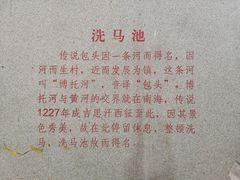 洗马池
传说包头因一条河而得名，因
河而生村，近而发展为镇，这条河
叫“博托河”，音译“包头”。博
托河与黄河的交界就在南海，传说
1227年成吉思汗西征至此，因其景
色秀美，故在此停留休息，整顿洗
马，洗马池故而得名。